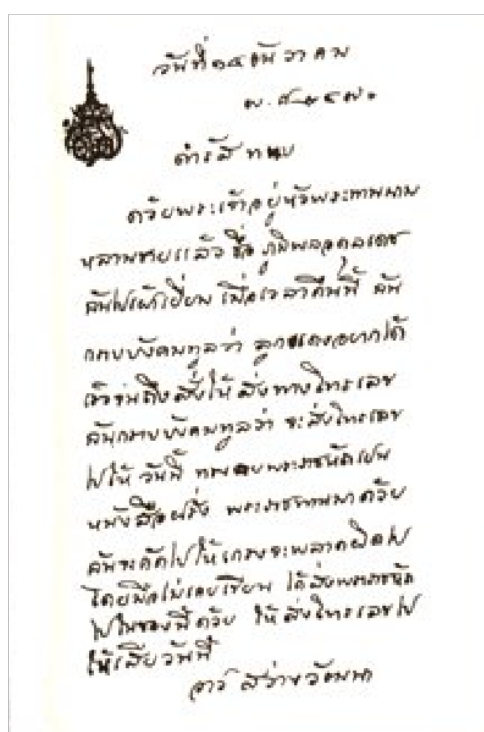 วันที่ ๑๔ ธันวาคม
พ.ศ. ๒๔๗๐
ดำรัส ทราบ
ด้วยพระเจ้าอยู่หัวพระทานนาม
หลานชายแล้ว ชื่อ ภูมิพลอดุลเดช
ฉันไปเฝ้าเยี่ยม เมื่อเวลาคืนนี้ ฉัน
กราบบังคมทูลว่า ลูกแดงอยากได้
เร็วจนถึงสั่งให้ส่งทางโทรเลข
ฉันกราบบังคมทูลว่า จะส่งโทรเลข
ไปให้ วันนี้ ทรงพระราชหัตถ์เป็น
หนังสือฝรั่ง พระราชทานมาด้วย
ฉันจะคัดไปให้เกรงจะพลาดผิดไป
โดยมือไม่เคยเขียน ได้ส่งพระราชหัตถ
ไปในซองนี้ด้วย ให้ส่งโทรเลขไป
ให้เสียวันนี้
สว่างวัฒนา